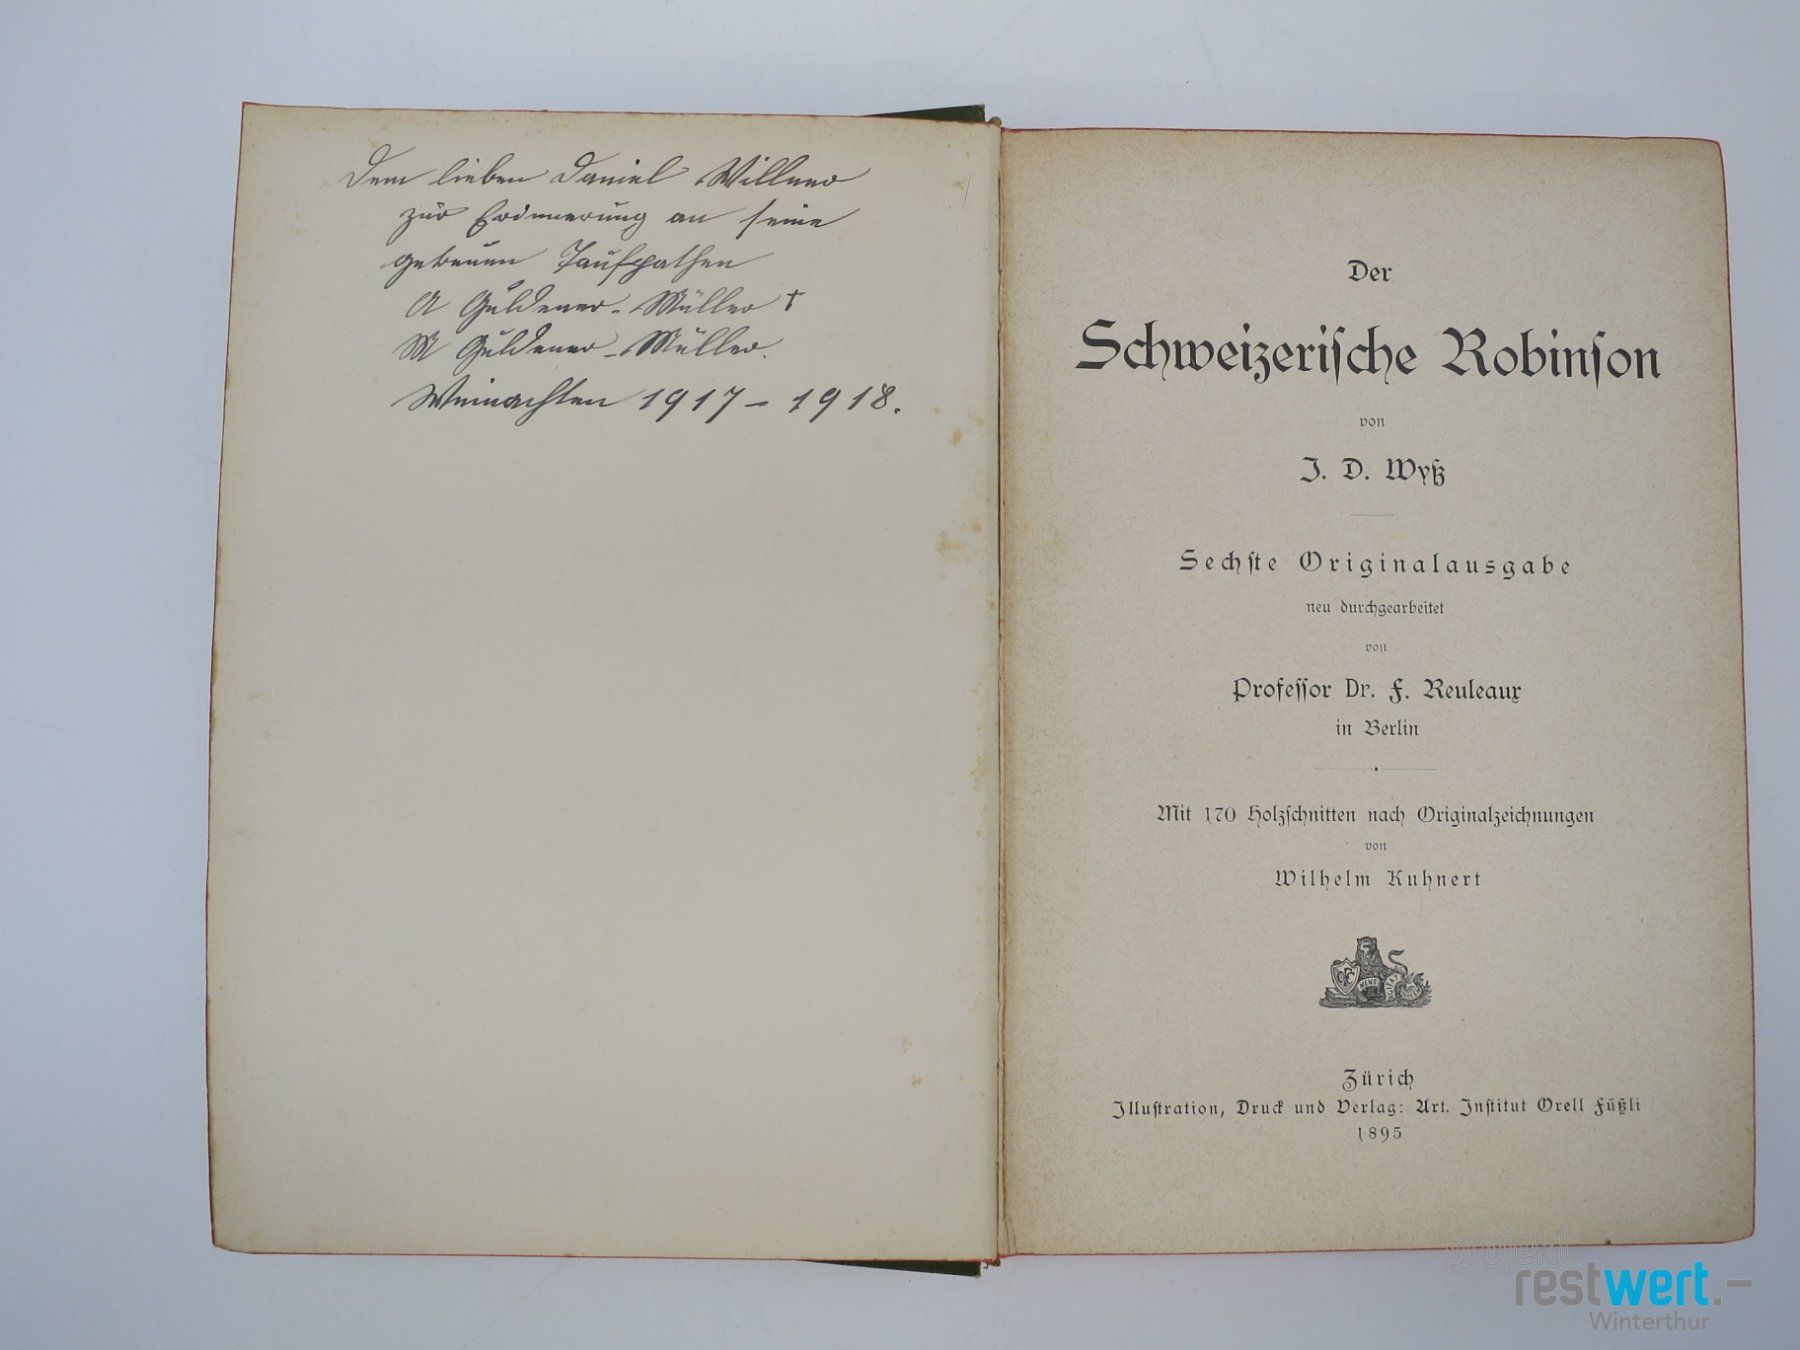 Dem lieben Daniel Willner
zur Erinnerung an seine
getreuen Taufpathen
A Guldener-Müller †
M Guldener-Müller.
Weinachten 1917 – 1918.
Der
Schweizerische Robinson
von
J. D. Wyß
Sechste Originalausgabe
neu durchgearbeitet
von
Professor Dr. F. Reuleaux
in Berlin
Mit 170 Holzschnitten nach Originalzeichnungen
von
Wilhelm Kuhnert
Zürich
Illustration, Druck und Verlag: Art. Institut Orell Füßli
1895
projekt
restwert.–
Winterthur